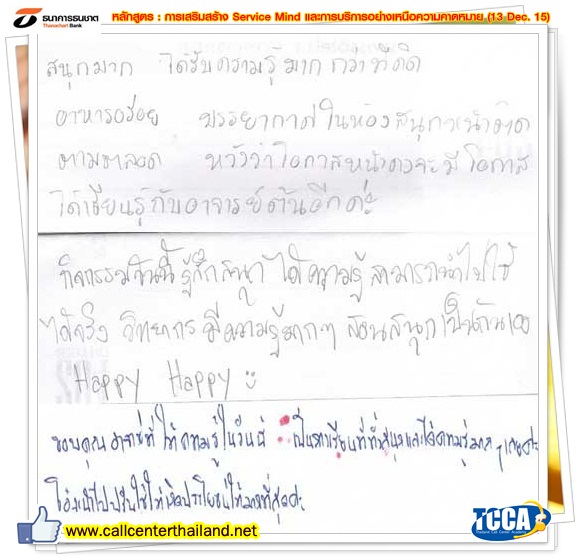 ธนาคารธนชาต
Thanachart Bank
หลักสูตร : การเสริมสร้าง Service Mind และการบริการอย่างเหนือความคาดหมาย (13 Dec. 15)
สนุกมาก ได้รับความรู้มากกว่าที่คิด
อาหารอร่อย บรรยากาศในห้องสนุกสนาน
ตามตลอด หวังว่าโอกาสหน้าคงจะมีโอกาส
ได้เรียนรู้กับอาจารย์ต้นอีกค่ะ
กิจกรรมวันนี้รู้สึกสนุก ได้ความรู้ สามารถนำไปใช้
ได้จริง วิทยากรมีความรู้มากๆ สอนสนุกเป็นกันเอง
Happy Happy
ขอบคุณอาจารย์ที่ให้ความรู้ในวันนี้ เป็นการเรียนที่ทั้งสนุกและได้ความรู้มากๆเลยค่ะ
นำไปปรับใช้ให้เกิดประโยชน์ให้มากที่สุดค่ะ
www.callcenterthailand.net
TCCA
Thailand Call Center Academy